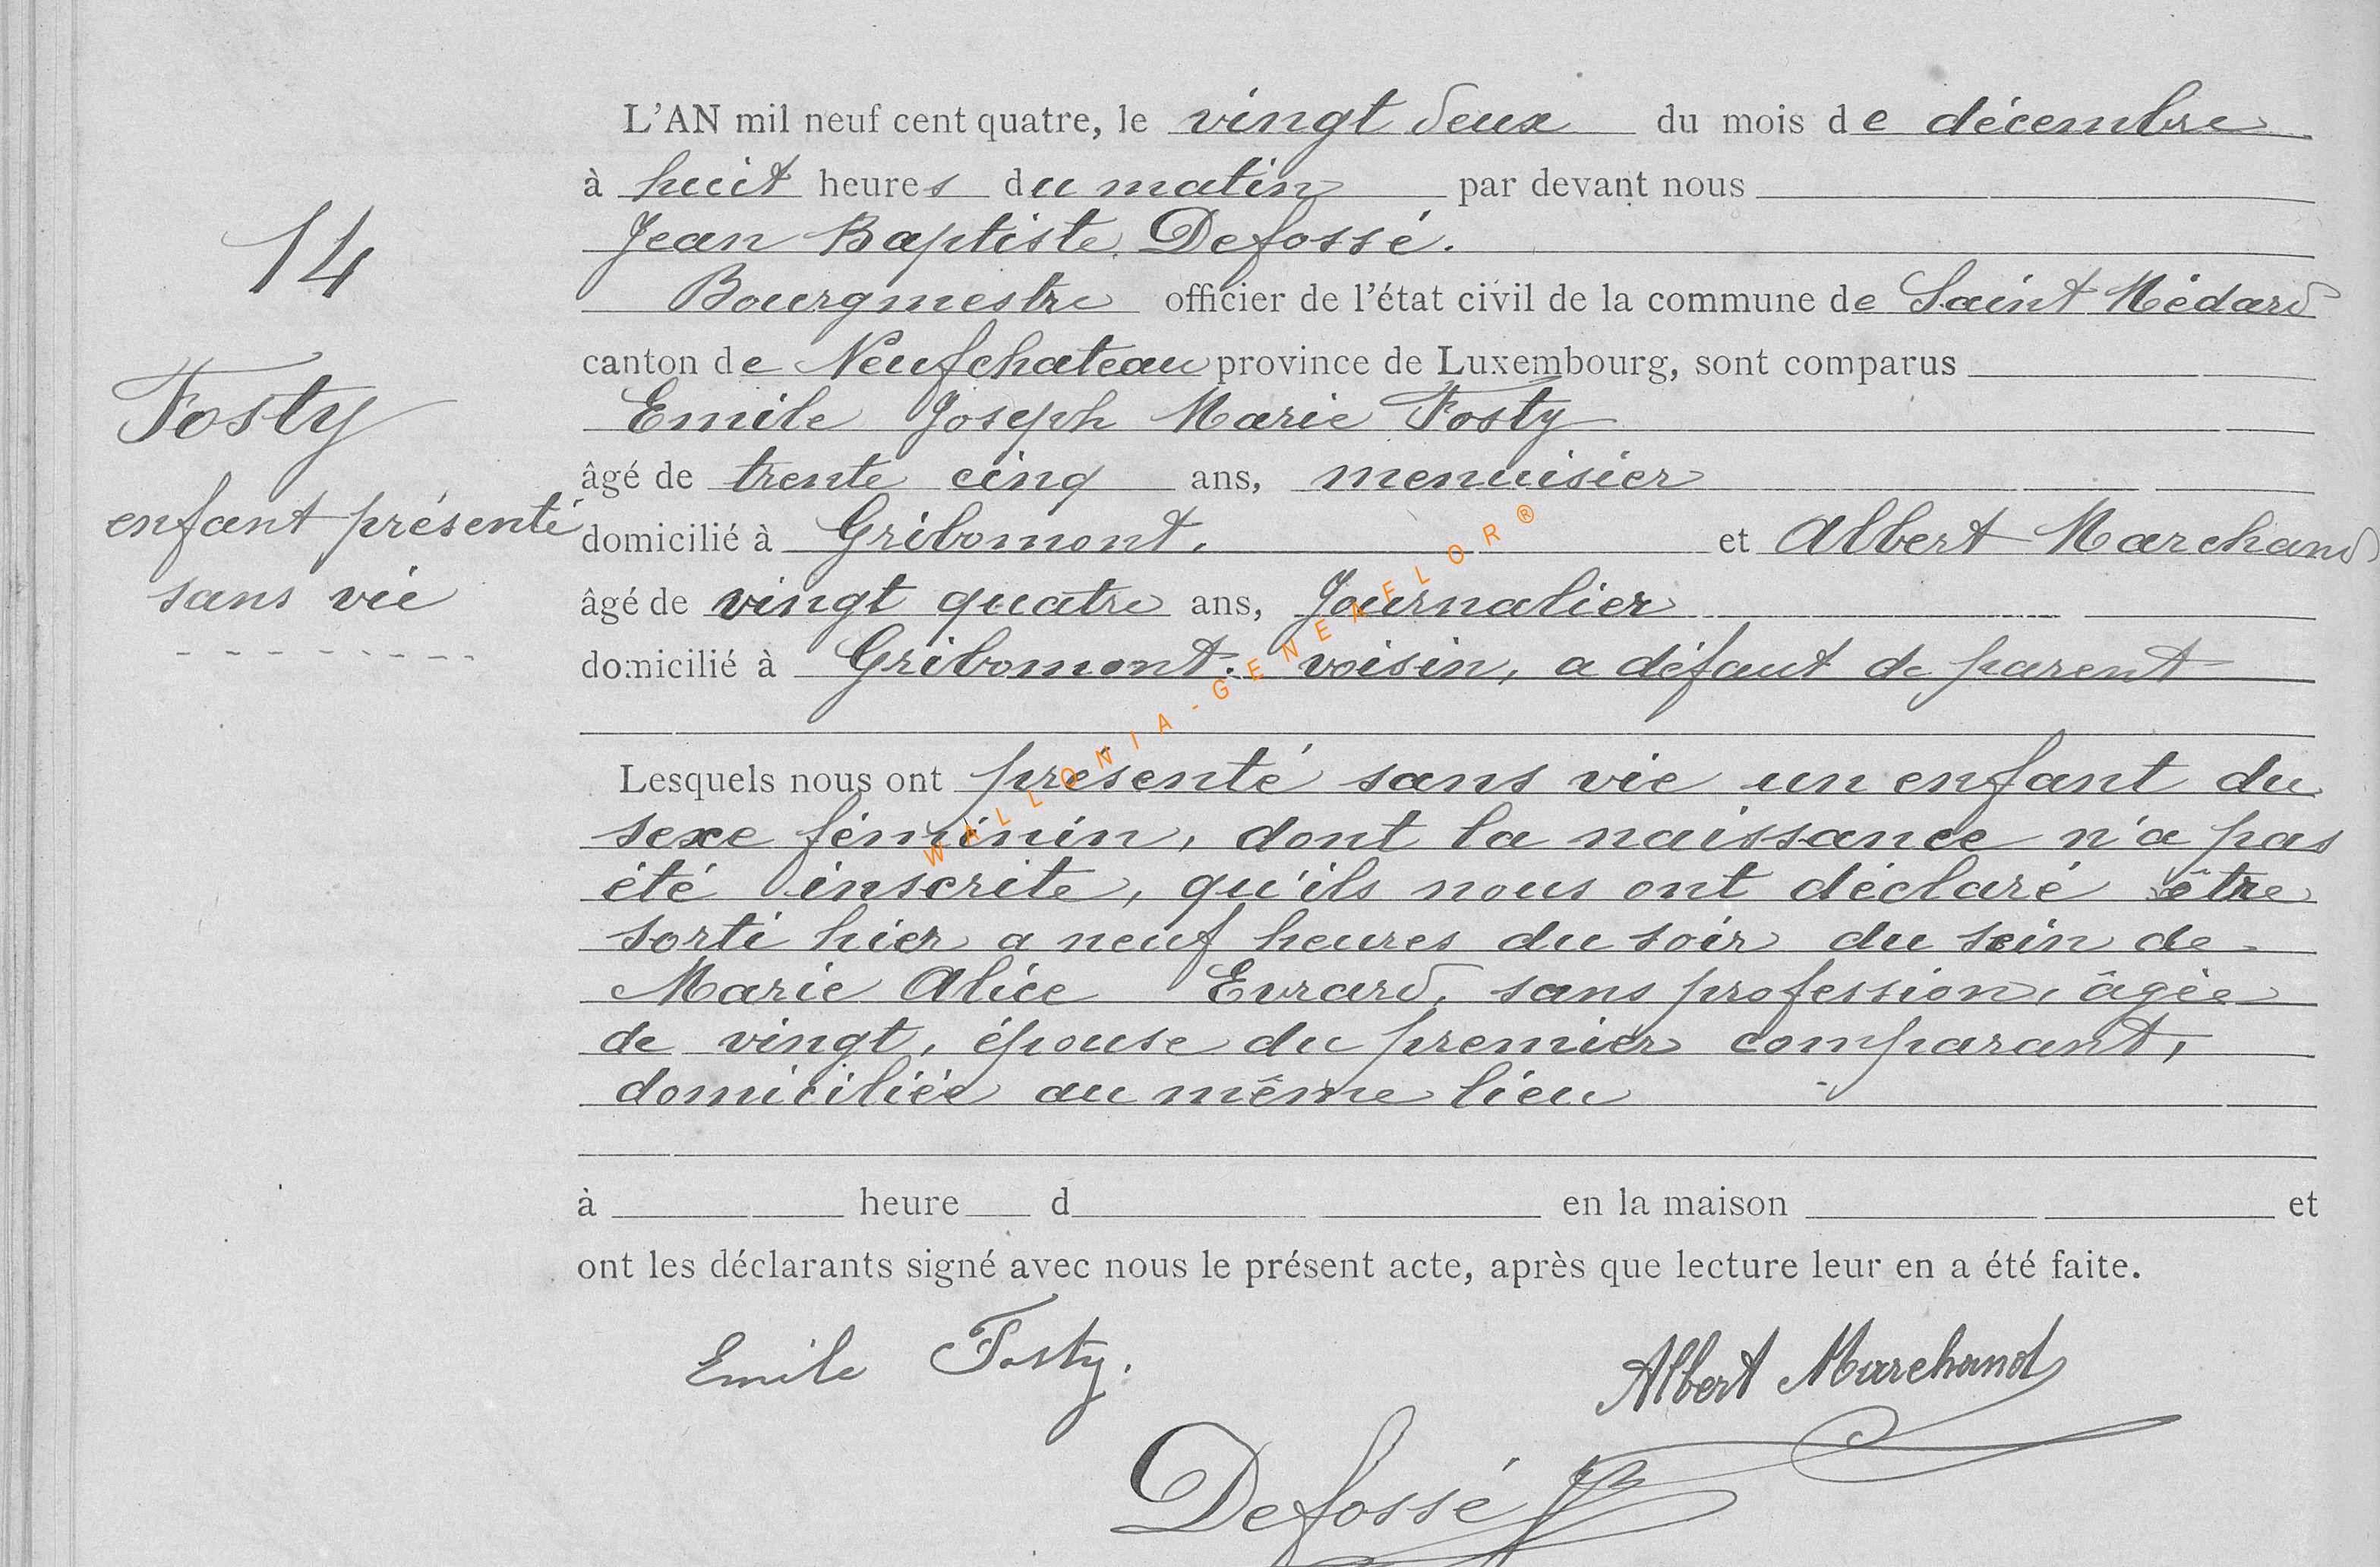 L'AN mil neuf cent quatre, le vingt deux du mois de décembre
à huit heures du matin par devant nous
Jean Baptiste Defossé.
Bourgmestre officier de l'état civil de la commune de Saint Médard
canton de Neufchateau province de Luxembourg, sont comparus
Emile Joseph Marie Fosty
âgé de trente cinq ans, menuisier
domicilié à Gribomont. et Albert Marchand
âgé de vingt quatre ans, Journalier
domicilié à Gribomont. voisin, a défaut de parent
Lesquels nous ont présenté sans vie un enfant du
sexe féminin, dont la naissance n'a pas
été inscrite, qu'ils nous ont déclaré être
sorti hier a neuf heures du soir du sein de
Marie Alice Evrard, sans profession, âgée
de vingt, épouse du premier comparant,
domiciliée au même lieu
à heure d en la maison et
ont les déclarants signé avec nous le présent acte, après que lecture leur en a été faite.
Emile Fosty. Albert Marchand
Defossé
14
Fosty
enfant présenté
sans vie
WALLONIA-GENEAFLOR®